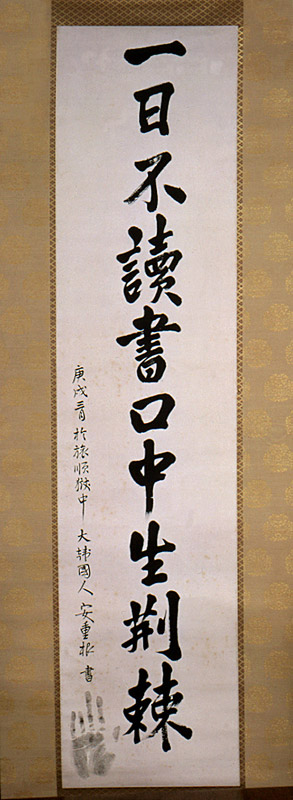 一日不讀書口中生荆棘
庚戌三月 於旅順獄中 大韓國人 安重根 書